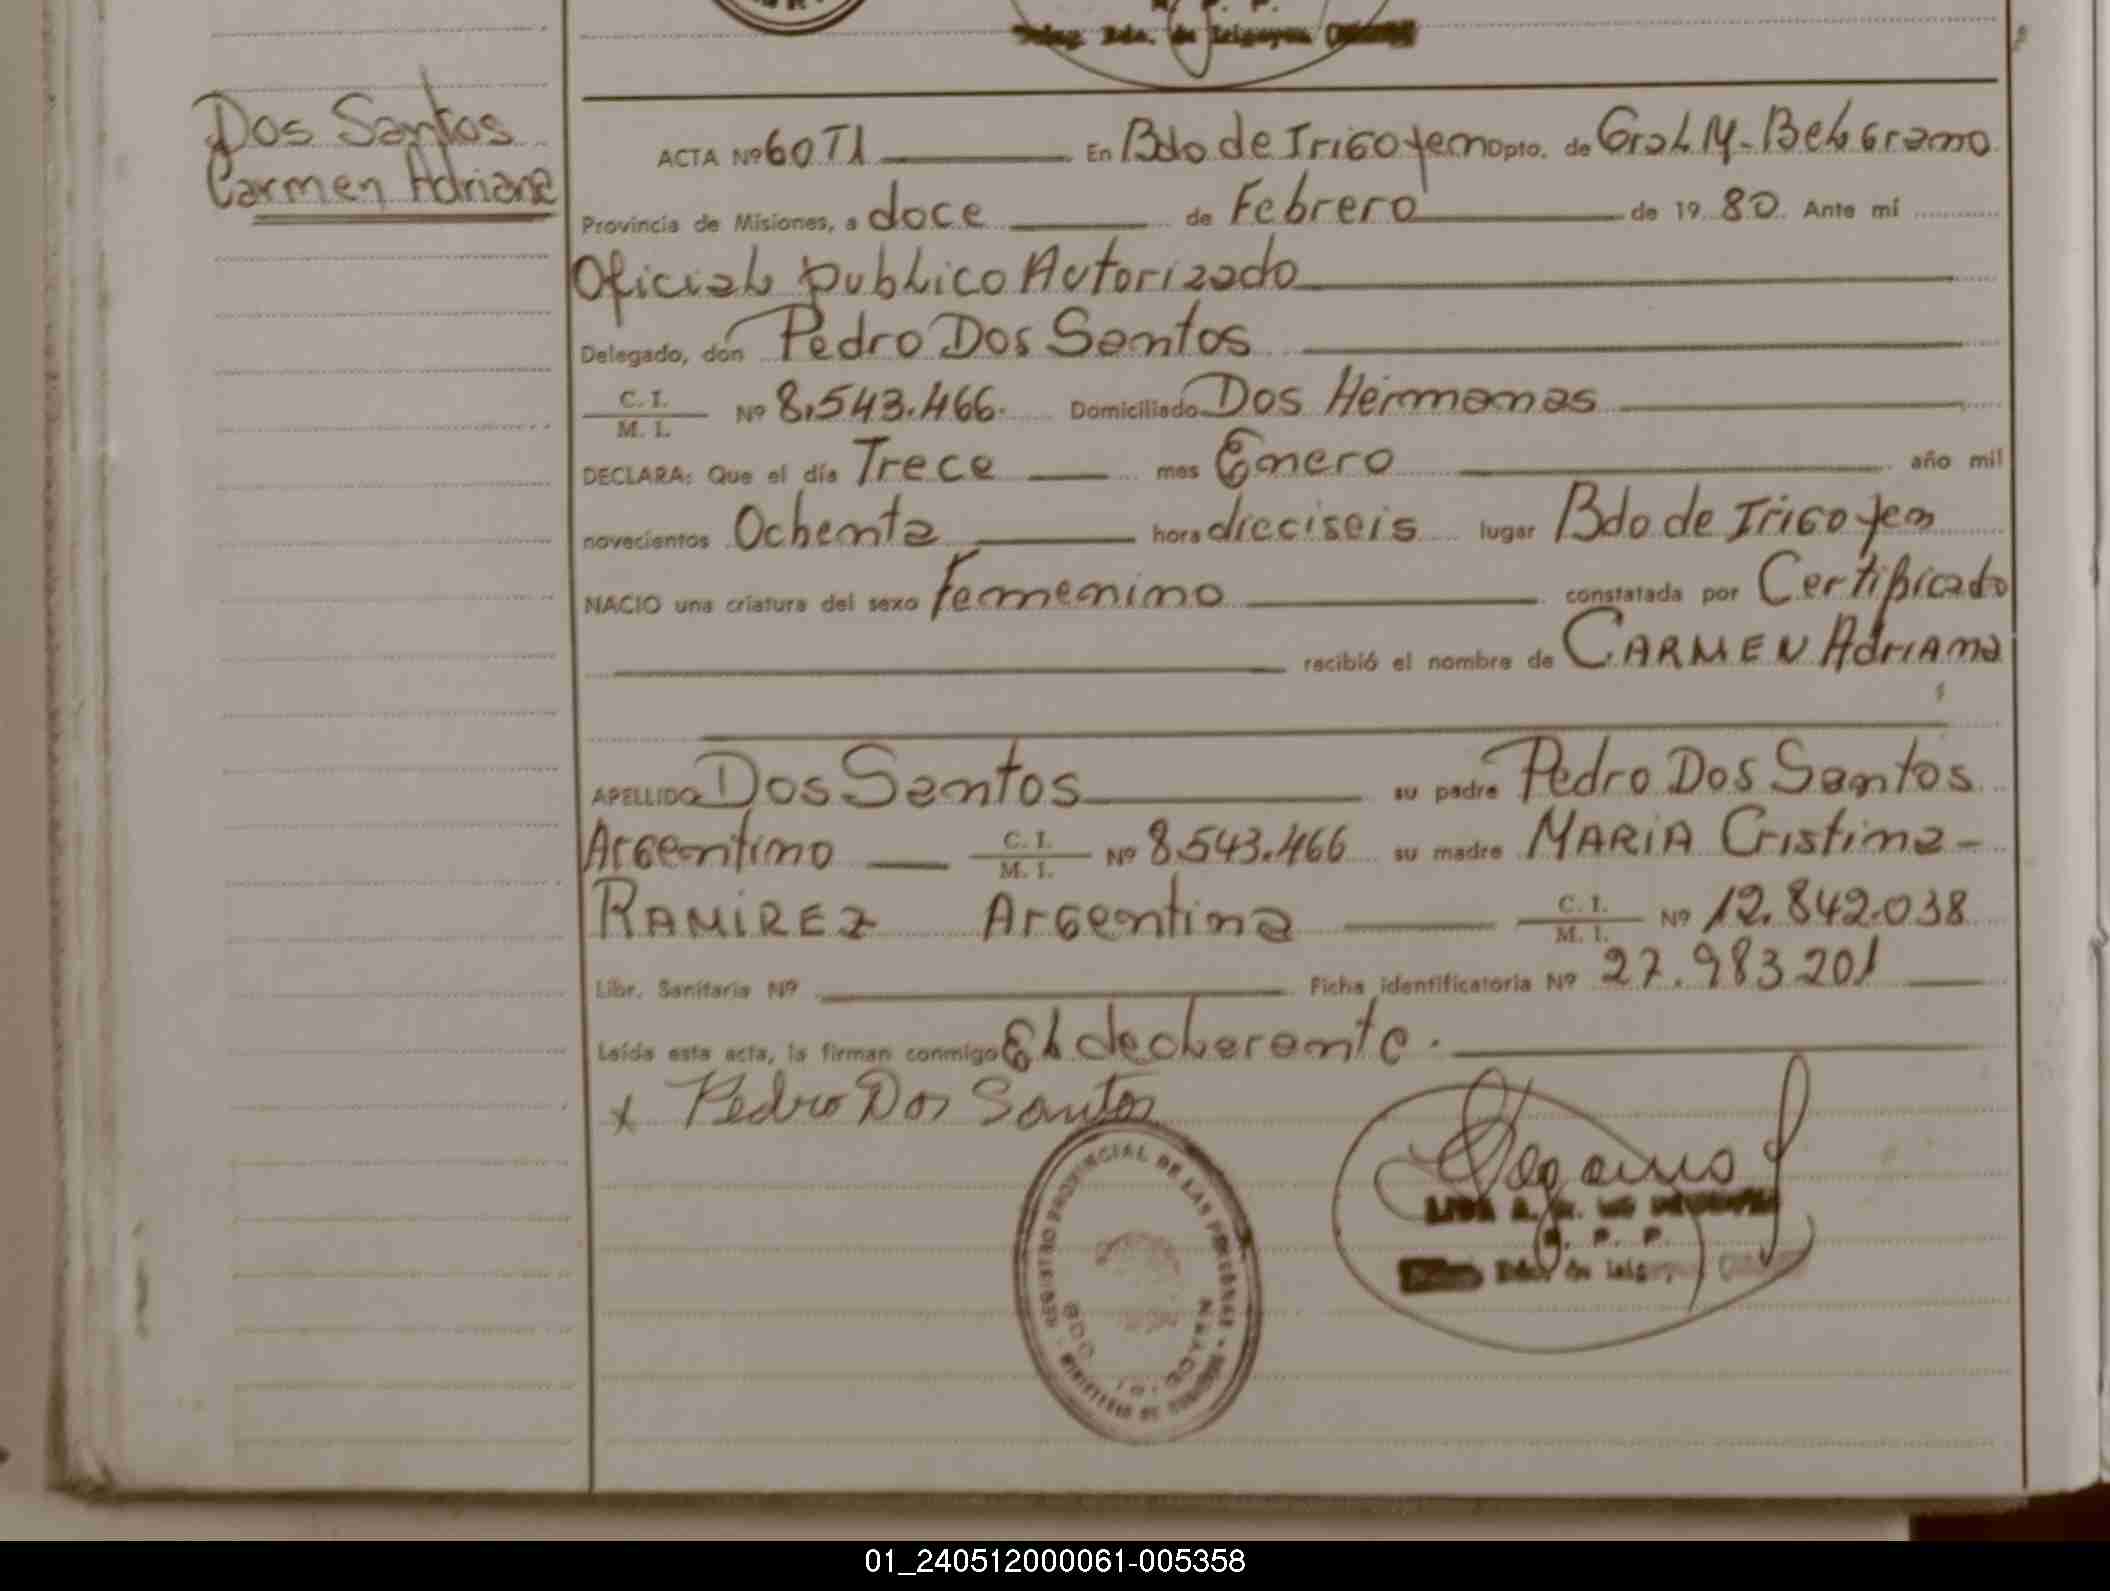 Dos Santos
Carmen Adriana
ACTA Nº 60 T1 En Bdo de Irigoyen Dpto. de Gral M. Belgrano
Provincia de Misiones, a doce de Febrero de 19 80. Ante mí
Oficial publico Autorizado
Delegado, don Pedro Dos Santos
C. I.
M. I.
Nº 8.543.466. Domiciliado Dos Hermanas
DECLARA: Que el día Trece mes Enero año mil
novecientos Ochenta hora dieciseis lugar Bdo de Irigoyen
NACIO una criatura del sexo Femenino constatada por Certificado
recibió el nombre de CARMEN Adriana
APELLIDO Dos Santos su padre Pedro Dos Santos
Argentino C. I. M. I. Nº 8.543.466 su madre MARIA Cristina-
RAMIREZ Argentina C. I. M. I. Nº 12.842.038
Libr. Sanitaria Nº Ficha identificatoria Nº 27.983.201
Leída esta acta, la firman conmigo El declarante.
x Pedro Dos Santos
REGISTRO PROVINCIAL DE LAS PERSONAS
MINISTERIO DE
01_240512000061-005358